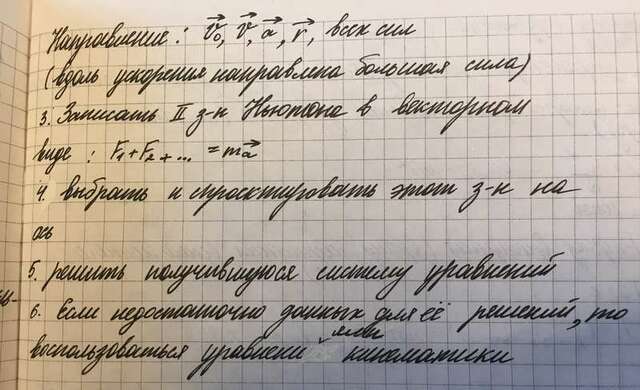 Направление: v₀, v, a, r, всех сил
(вдоль ускорения направлена большая сила)
3. Записать II з-н Ньютона в векторном
виде: F₁+F₂+... = ma
4. выбрать и спроектировать этот з-н на
ось
5. решить получившуюся систему уравнений
6. Если недостаточно данных для её решения, то
воспользоваться уравнениями кинематики